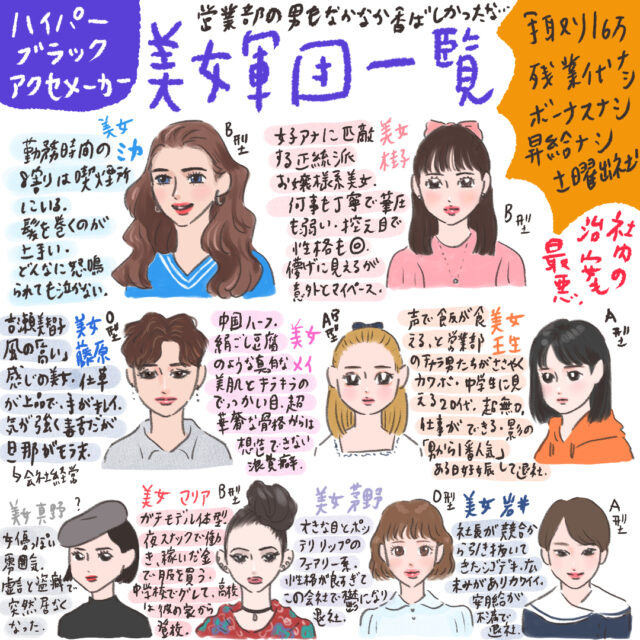 ハイパー
ブラック
アクセメーカー
営業部の男もなかなか香ばしかったな…
美女軍団一覧
手取り16万
残業代ナシ
ボーナスナシ
昇給ナシ
土曜出社
社内の
治安
最悪
美女
ミカ
B型
勤務時間の
8割りは喫煙所
にいる。
髪を巻くのが
上手い。
どんなに怒鳴
られても泣かない.
美女
桂子
B型
女子アナに匹敵
する正統派
お嬢様系美女.
何事も丁寧で筆圧
も弱い・控え目で
性格も◎.
儚げに見えるが
意外とマイペース.
美女
藤原
O型
吉瀬美智子
風の「高い」
感じの美女.仕草
が上品で、手がキレイ.
気が強く毒舌だが
旦那がモラ夫.
↳会社経営
美女
メイ
AB型
中国ハーフ.
絹ごし豆腐
のような真白な
美肌とキラキラの
でっかい目.超
華奢な骨格からは
想像できない
浪費癖.
美女
壬生
A型
声で飯が食
える、と営業部
のチャラ男たちがざわつく
カワボ.中学生に見
える20代.超無口.
仕事ができる.影の
「男から1番人気」
ある日妊娠して退社.
美女真野
?
女優っぽい
雰囲気.
虚言と盗癖で
突然居なく
なった.
美女マリア
B型
ガチモデル体型.
夜スナックで働
き、稼いだ金
で服を買う.
中学校でグレて、高校
は彼の家から
登校.
美女茅野
O型
大きな目とポン
テリリップの
フェアリー系.
性格が良すぎて
この会社で鬱になり
退社.
美女岩井
A型
社長が競合か
ら引き抜いて
きたシゴデキ.な
まみがありカワイイ.
安月給が
不満で
退社.